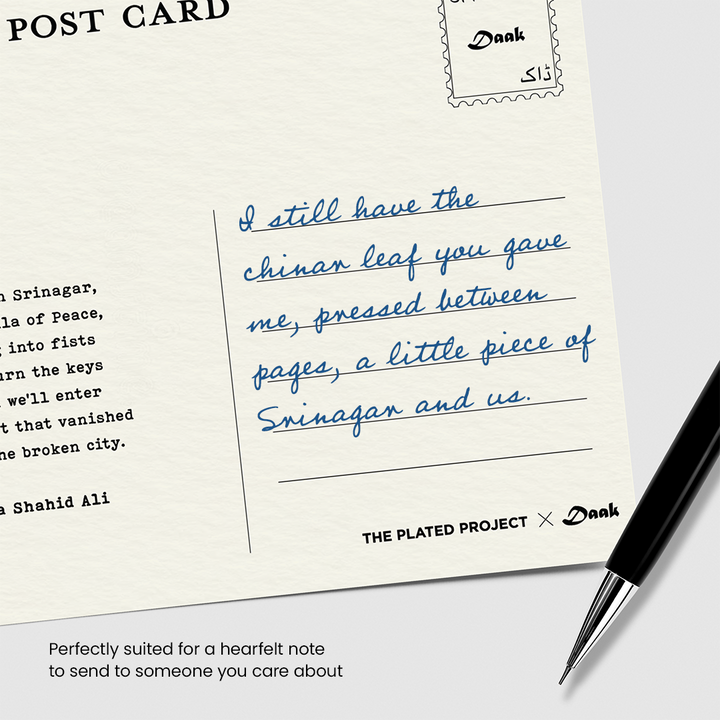 POST CARD
Daak
ڈاک
Srinagar,
of Peace,
into fists
the keys
we'll enter
that vanished
broken city.
Shahid Ali
I still have the
chinar leaf you gave
me, pressed between
pages, a little piece of
Srinagar and us.
THE PLATED PROJECT × Daak
Perfectly suited for a hearfelt note
to send to someone you care about